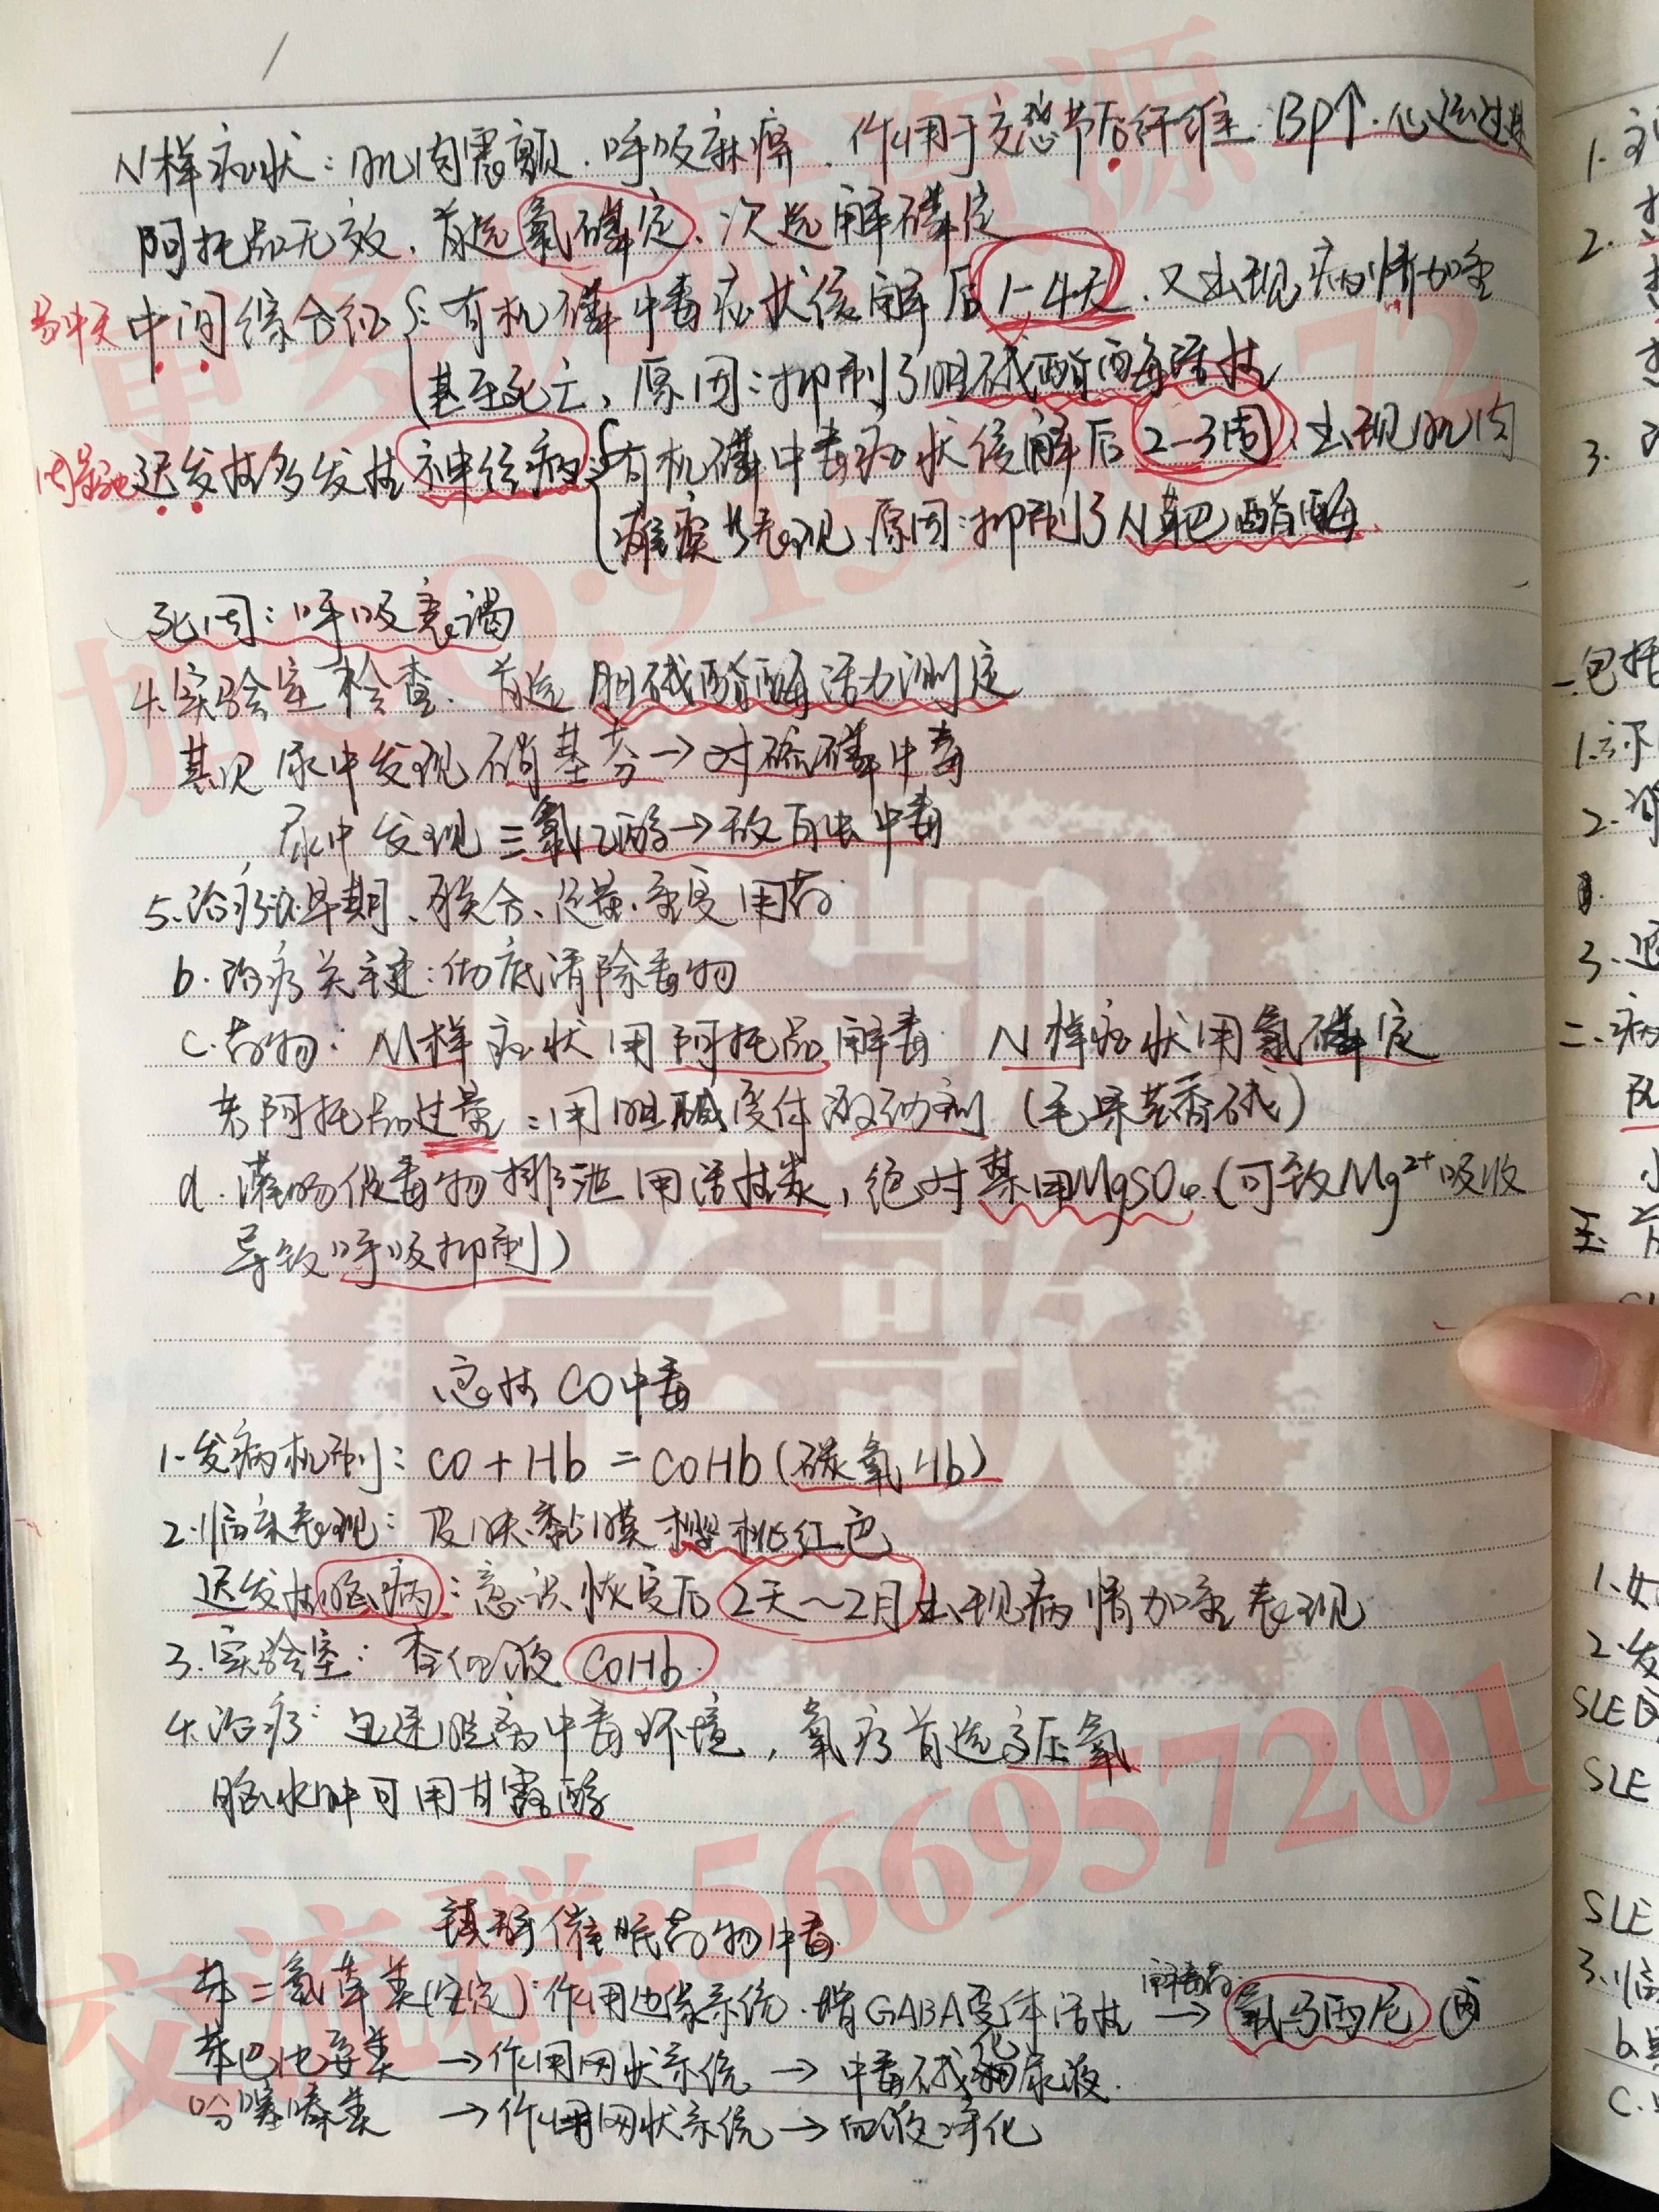 N样症状：肌肉震颤、呼吸麻痹、作用于交感节后纤维：BP↑、心运过速
阿托品无效、首选氯磷定、次选解磷定
中间综合征：有机磷中毒症状缓解后1-4天、又出现病情加重
甚至死亡，原因：抑制了胆碱酯酶活性
迟发性多发性神经病：有机磷中毒症状缓解后2-3周、出现肌肉
瘫痪等表现 原因：抑制了N靶酯酶
死因：呼吸衰竭
4.实验室检查、首选胆碱酯酶活力测定
其次尿中发现硝基芬→对硫磷中毒
尿中发现三氯乙醇→敌百虫中毒
5.治疗：a.早期、联合、足量、重复用药
b.治疗关键：彻底清除毒物
c.药物：M样症状用阿托品解毒 N样症状用氯磷定
若阿托品过量：用胆碱受体激动剂（毛果芸香碱）
d.灌肠促毒物排泄用活性炭，绝对禁用MgSO4（可致Mg2+吸收
导致呼吸抑制）
急性CO中毒
1.发病机制：CO+Hb=COHb（碳氧Hb）
2.临床表现：皮肤黏膜樱桃红色
迟发性脑病：意识恢复后2天～2月出现病情加重表现
3.实验室：查血液COHb
4.治疗：迅速脱离中毒环境，氧疗首选高压氧
脑水肿可用甘露醇
镇静催眠药物中毒
苯二氮䓬类（安定）：作用边缘系统、增GABA受体活性 解毒药→氟马西尼
苯巴比妥类→作用网状系统→中毒碱化尿液
吩噻嗪类→作用网状系统→血液净化
更多医疗资源
加QQ:
医凯学歌
交流群:566957201